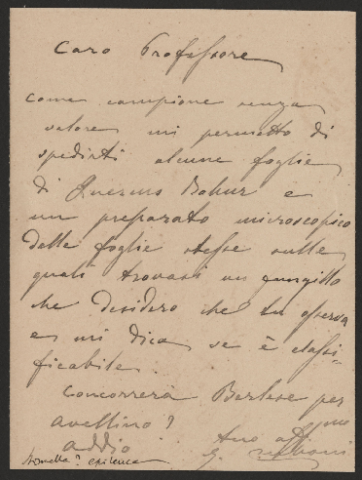 Caro Professore
Come campione senza
valore mi permetto di
spedirti alcune foglie
di Quercus Robur e
un preparato microscopico
delle foglie stesse sulle
quali trovasi un funghitto
che desidero che tu osservi
e mi dica se è classi-
ficabile.
Concorrerà Berlese per
Avellino?
Addio
Tuo aff mo
G.